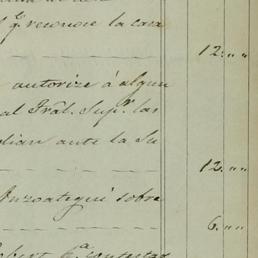 q.e renuncie la casa
12. „ „
autorize á algun
al Trâl. Sup.r las
dian ante la Su
12. „ „
Anzoategui sobre
6. „ „